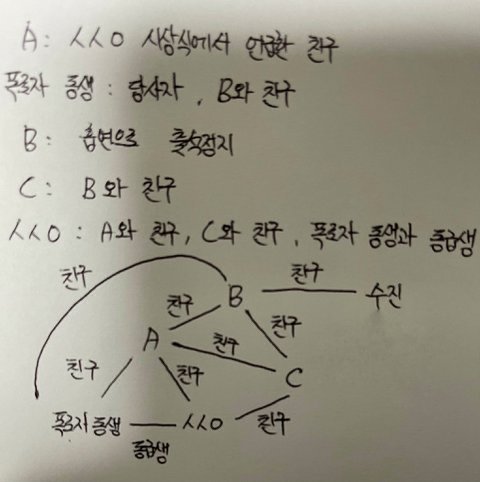 A: ㅅㅅㅇ 시상식에서 언급한 친구
폭로자 동생 : 당사자, B와 친구
B: 흡연으로 출석정지
C: B와 친구
ㅅㅅㅇ : A와 친구, C와 친구, 폭로자 동생과 동급생
친구
친구
B
수진
친구
친구
A
친구
친구
친구
C
폭로자 동생
ㅅㅅㅇ
친구
동급생